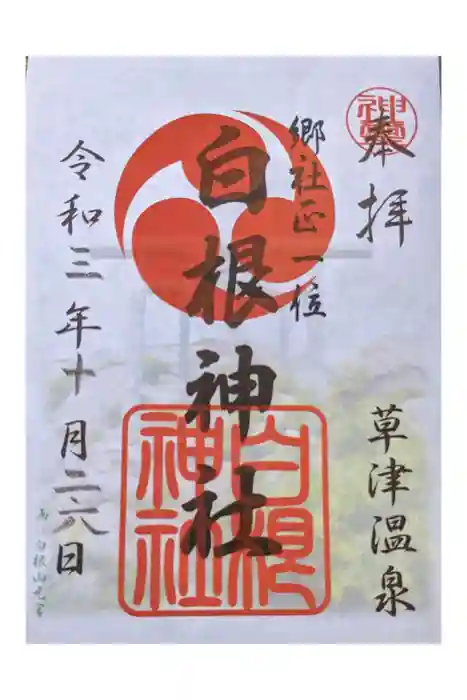 奉拝
草津温泉
郷社正一位
白根神社
白根
神社
令和三年十月二六日